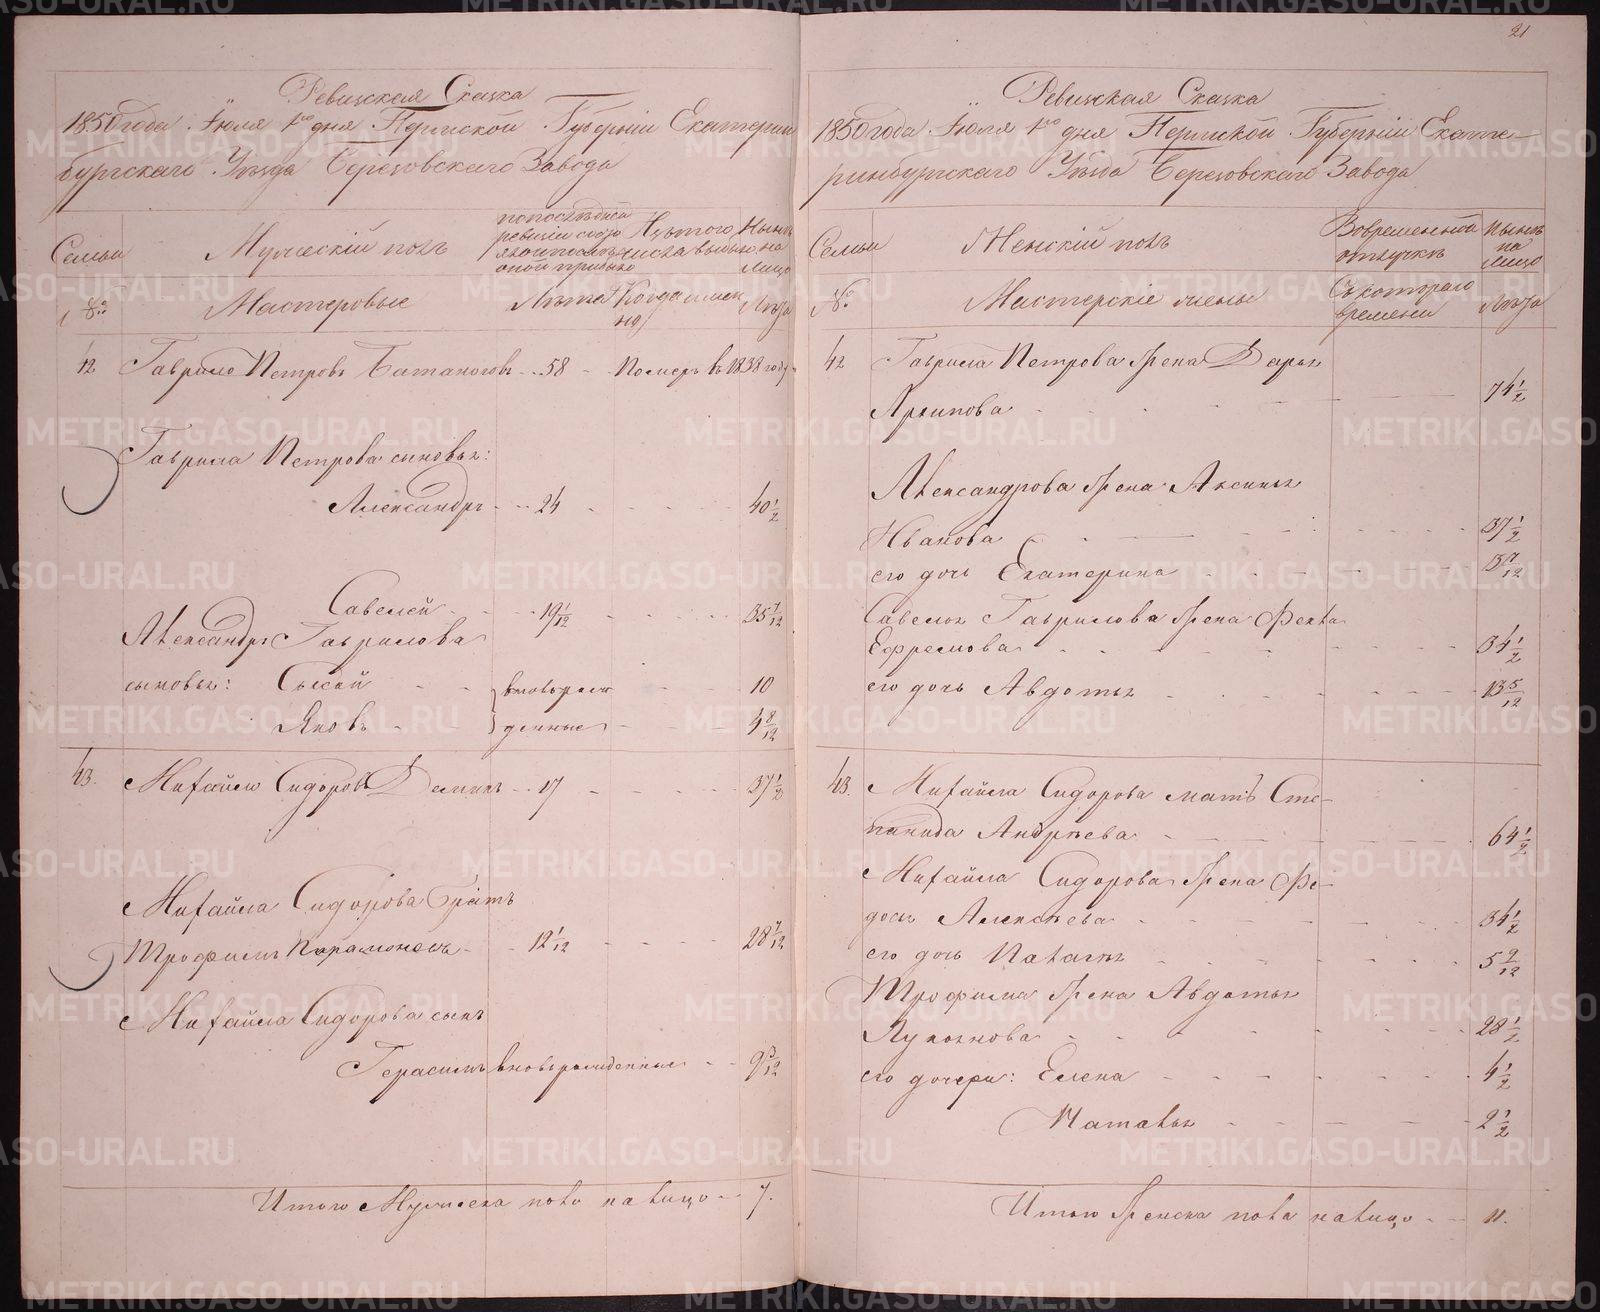 Ревизская Сказка
1850 года Іюля 1го дня Пермской Губерніи Екатерин
бургскаго Уезда Березовскаго Завода
Семьи
Мужескій полъ
по последней
ревизіи состо
Изъ того
числа выбыло
Ныне
на
лицо
№
Мастеровые
Лета
Когда имен
но
Лета
42
Гаврило Петровъ Батаноговъ
58
Померъ въ 1838 году
Гаврила Петрова сыновья:
Александръ
24
40 1/2
Савелей
19 1/12
35 7/12
Александра Гаврилова
сыновья: Сысой
вновьрож
10
Яковъ
денные
4 8/12
43.
Михайло Сидоровъ Деминъ
17
37 1/2
Михайла Сидорова братъ
Трофимъ Парамоновъ
12 1/12
28 7/12
Михайла Сидорова сынъ
Герасимъ вновьрожденные
9 3/12
Итого Мужеска пола на лицо
7.
21
Ревизская Сказка
1850 года Іюля 1го дня Пермской Губерніи Екате-
ринбургскаго Уѣзда Березовскаго Завода
Семьи
Женскій полъ
Во временной
отлучкѣ
Нынѣ
на
лицо
№
Мастерскіе жены
Съ котораго
времени
Лета
42
Гаврила Петрова жена Дарья
Архипова
74 1/2
Александрова жена Аксинья
Иванова
37 1/2
его дочь Екатерина
13 7/12
Савелья Гаврилова жена Фекла
Ефремова
34 1/2
его дочь Авдотья
13 5/12
43.
Михайла Сидорова мать Сте-
панида Андрѣева
64 1/2
Михайла Сидорова жена Фе-
дось Алексѣева
34 1/2
его дочь Наталья
5 9/12
Трофима жена Авдотья
Лукьянова
28 1/2
его дочери: Елена
4 1/2
Маталья
2 1/2
Итого Женска пола налицо
11.
METRIKI.GASO-URAL.RU